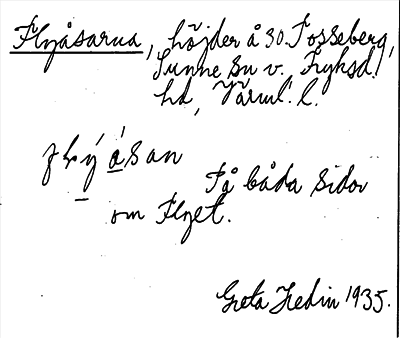 Flyåsarna, höjder å SO. Fosseberg,
Sunne sn v. Fryksd.
hd, Värml. l.
På båda sidor
om Flyet.
Greta Hedin 1935.